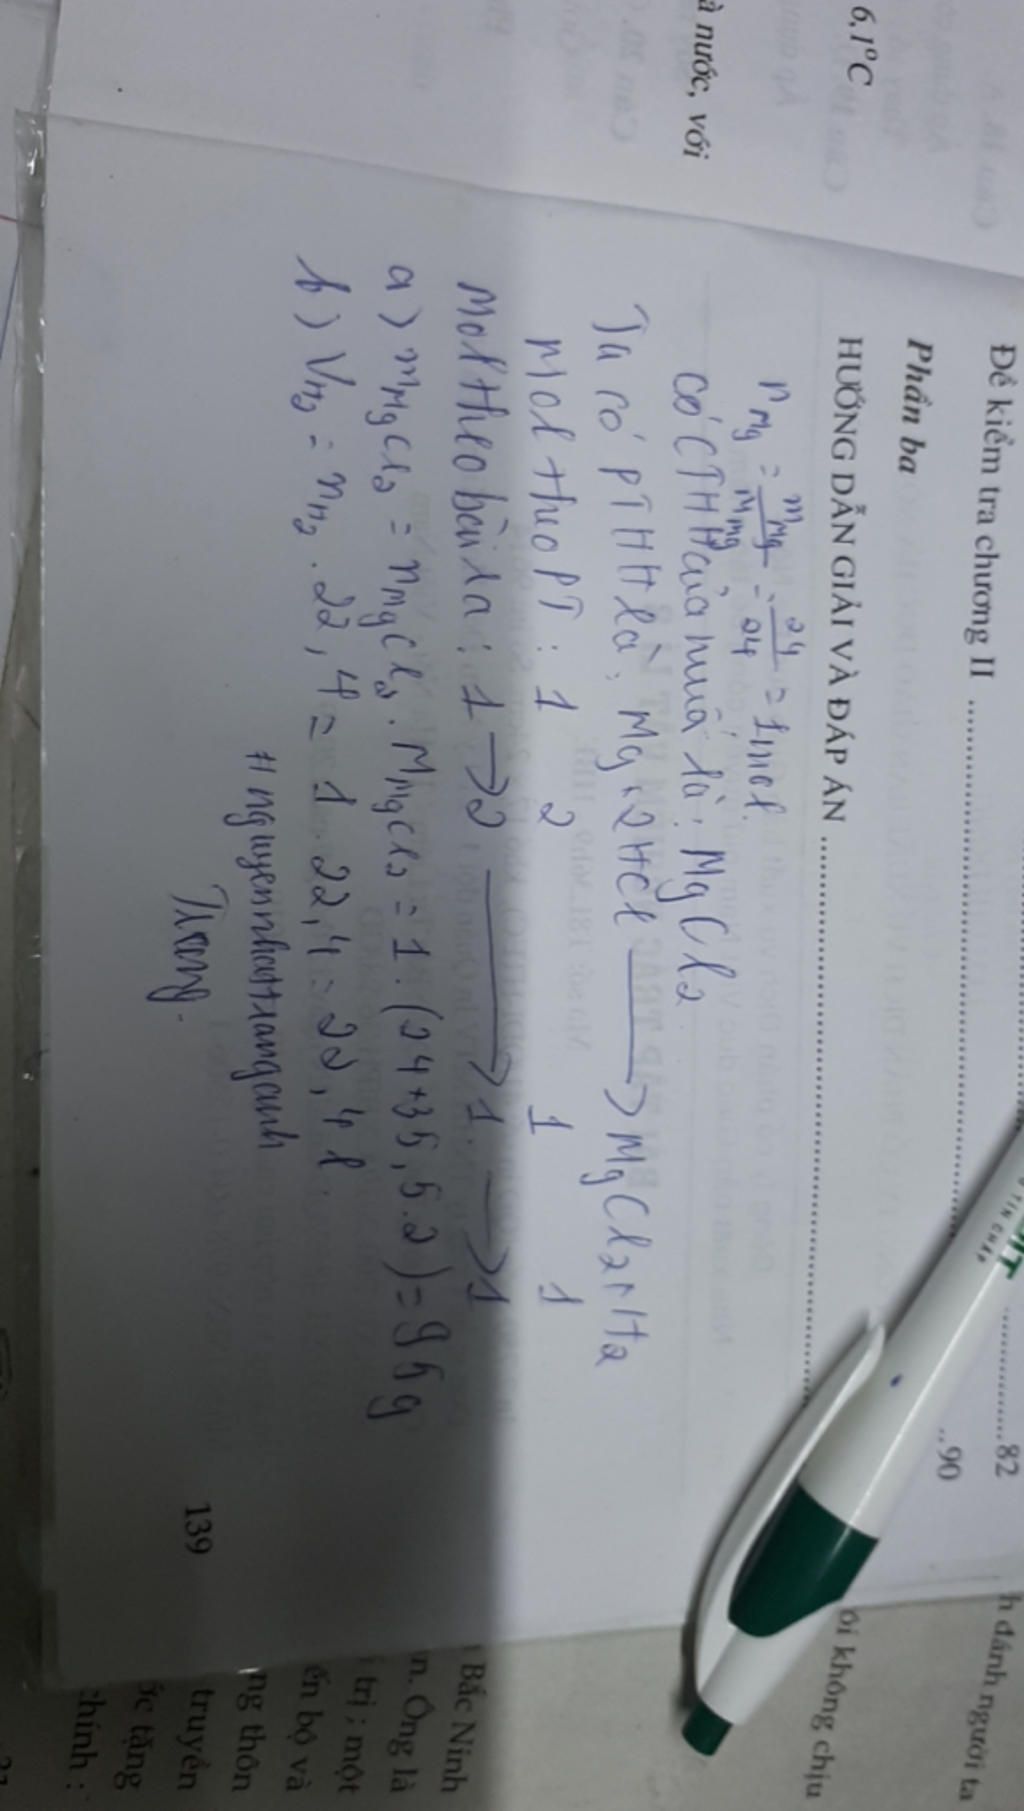 6,1°C
à nước, với
Đề kiểm tra chương II ..........82
Phần ba
..90
HƯỚNG DẪN GIẢI VÀ ĐÁP ÁN ..........
nMg = mMg/MMg = 24/24 = 1mol.
có CTHH của muối là: MgCl2
Ta có PTHH là: Mg + 2HCl → MgCl2 + H2
Mol theo PT: 1 2 1 1
Mol theo bài ra: 1 → 2 → 1 → 1
a) mMgCl2 = nMgCl2 . MMgCl2 = 1. (24+35,5.2) = 95g
b) VH2 = nH2 . 22,4 = 1 . 22,4 = 22,4 l
#nguyennhattranganh
Trang.
139
h đánh người ta
ôi không chịu
Bắc Ninh
n. Ông là
trị ; một
ến bộ và
ng thôn
truyền
ốc tặng
chính :